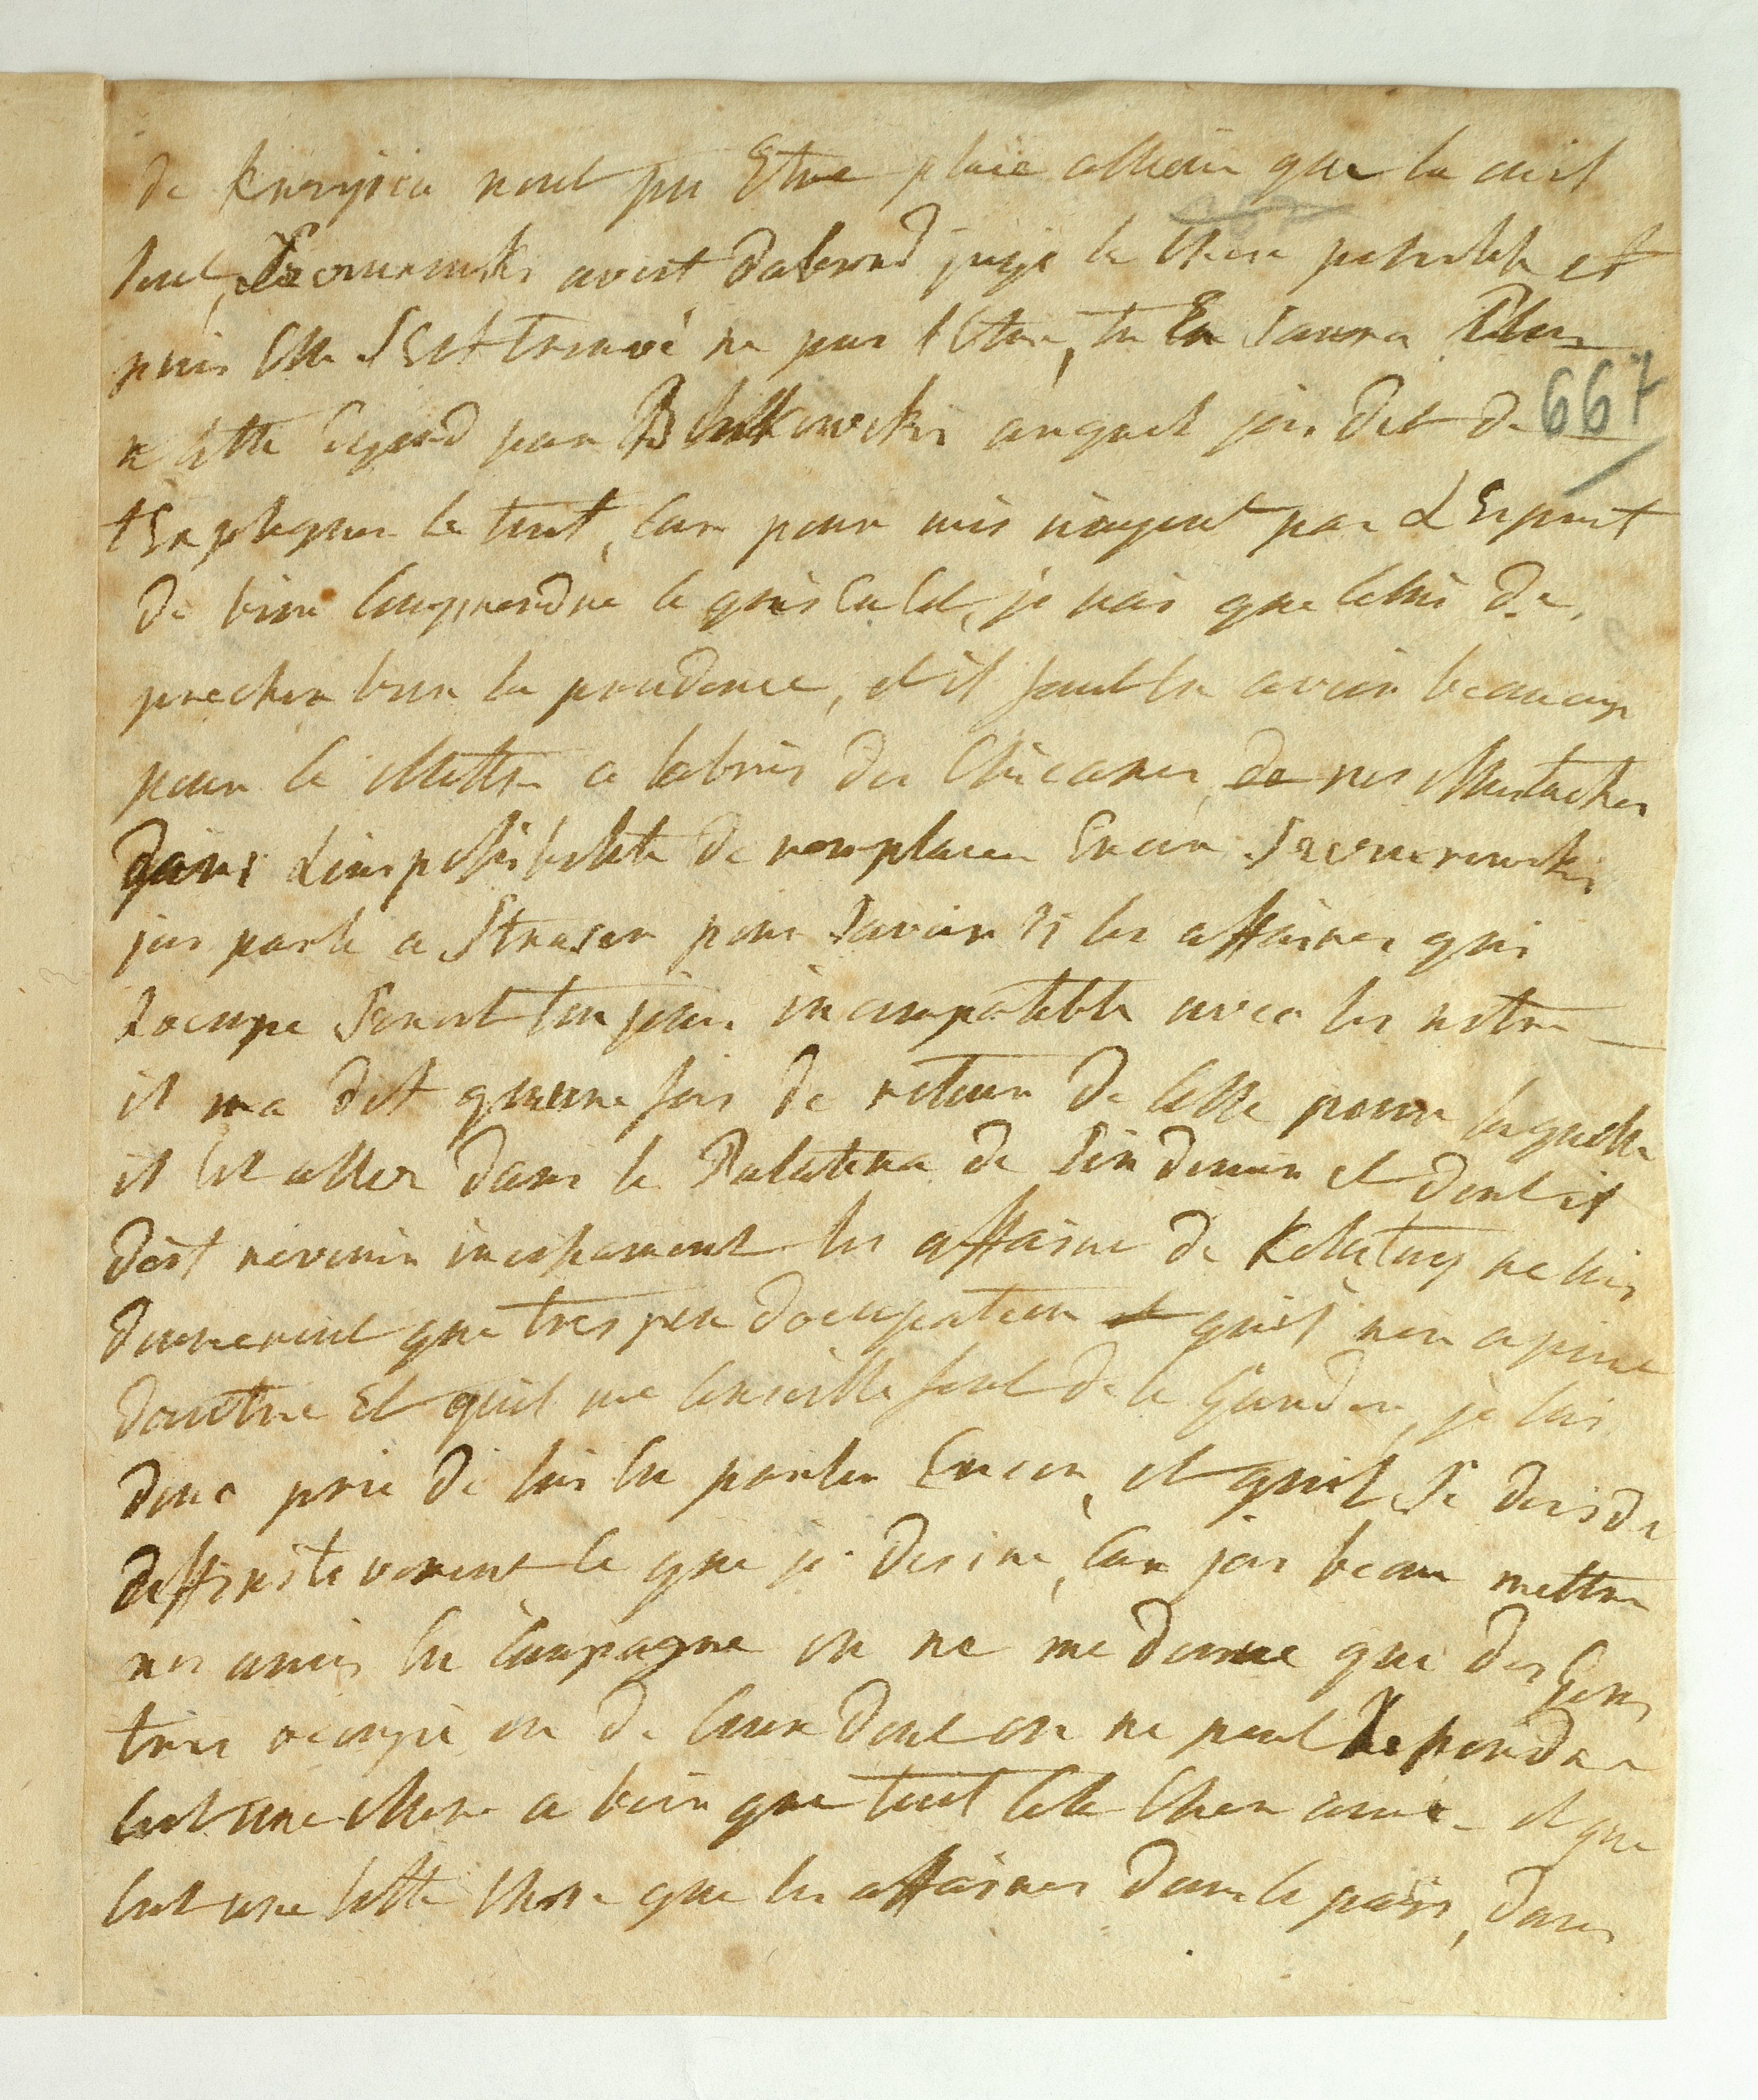 de Krzyica nont pu Etre placé allieur que la cest
tout, Skowronski avoit dabord jugé la chose possible et
puis Elle SEst trouvé ne pas lEtre, tu En Saura Plus
a cette Egard par Bulkowski auquel jai dit de
667
tExpliquer le tout, car pour moi naiyent pas LEsprit
de bien comprendre ce quis En Est, je nais que celui de
precher bien la prudence, et il faut En avoir beaucoup
pour ce Mettre a labris des Chicanes de nos Moustaches
dans Limpossibilité de remplacer Encor Skowronski
jai parlé a Straser pour Savoir si les affaires qui
Locupe Seront toujour incompatible avec les notre
il ma dit quune fois de retour de Celle pour laquelle
il Est aller dans le Palatina de Sendomir et dont il
doit revenir incessament les affaire de Kolætay ne lui
donneront que tres peu docupation et quil nen a point
dautre Et quil me conseille fort de le Garder, je lais
donc prié de lui En parler Encor, et quil Se deside
deffinitivement ce que je desire, Car jai beau mettre
nos amis En Campagne on ne me donne que des Gens
tres ocupé ou de Ceux dont on ne peut Repondre
cest une Mere a boir que tout cela Cher ami et que
cest une Cette chose que les affaires dans le païs, dans